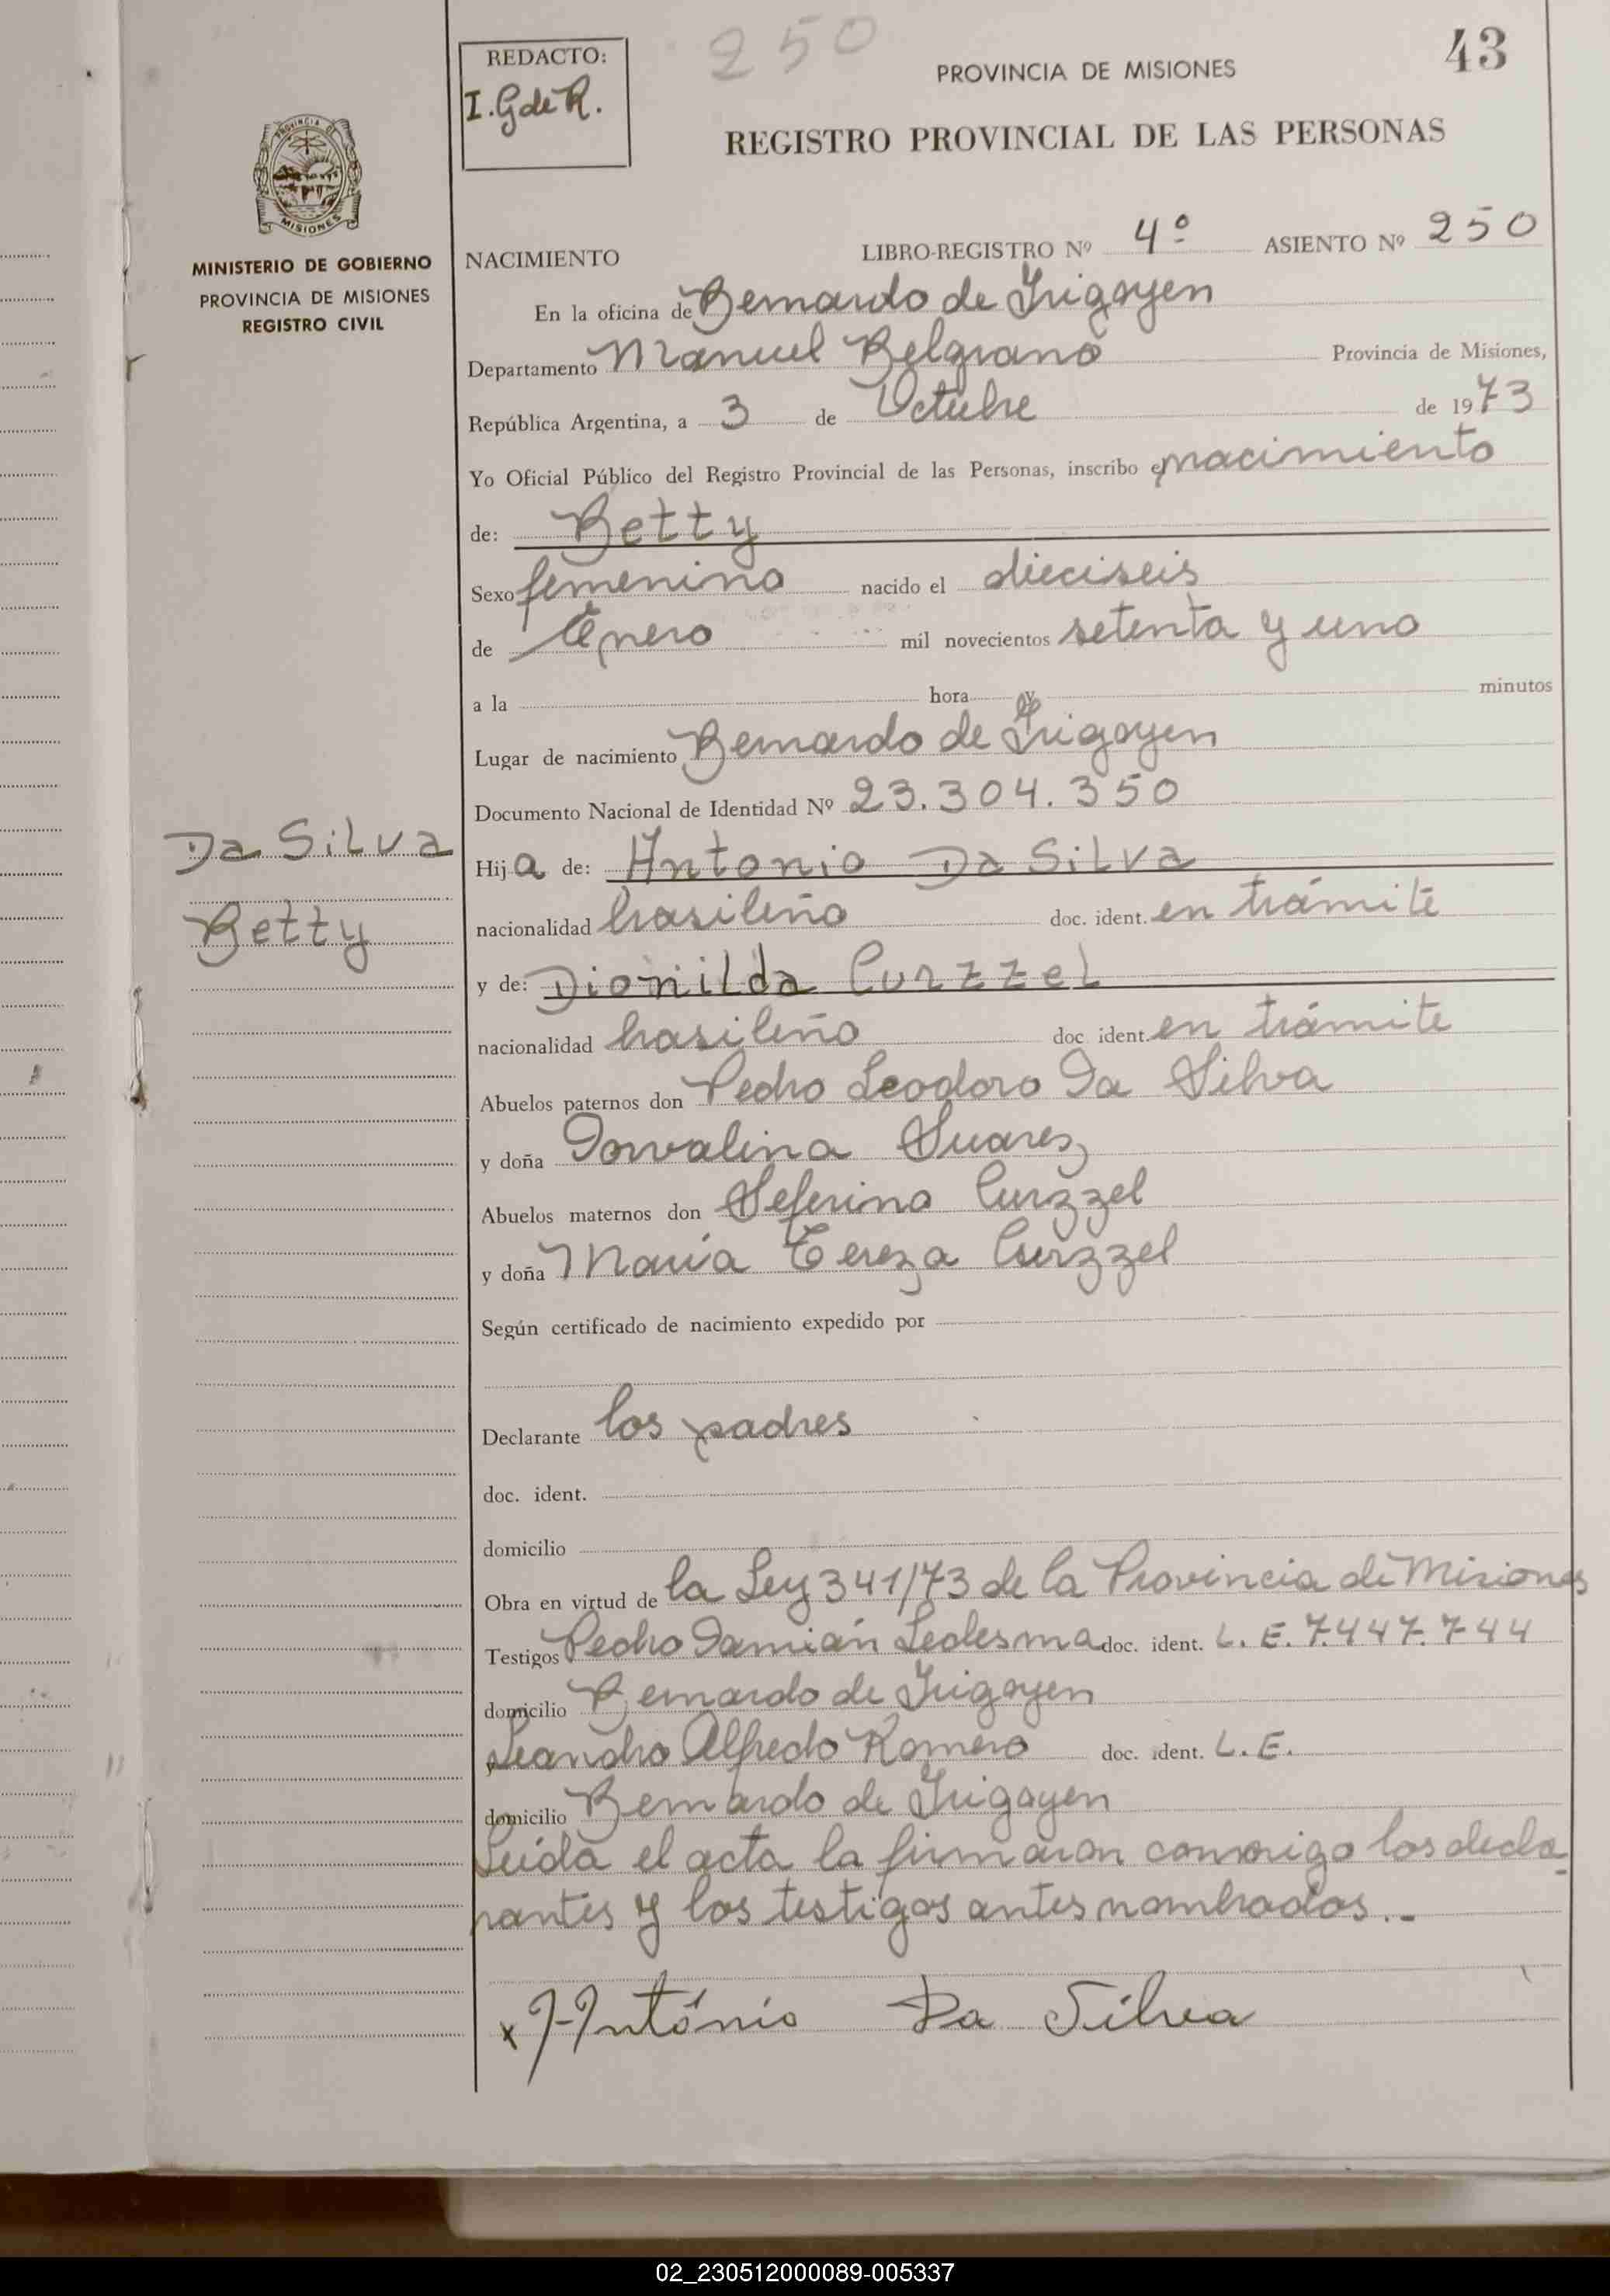 250
43
REDACTO:
I. G de R.
PROVINCIA DE MISIONES
REGISTRO PROVINCIAL DE LAS PERSONAS
PROVINCIA DE
MISIONES
MINISTERIO DE GOBIERNO
PROVINCIA DE MISIONES
REGISTRO CIVIL
NACIMIENTO LIBRO-REGISTRO Nº 4º ASIENTO Nº 250
En la oficina de Bernardo de Irigoyen
Departamento Manuel Belgrano Provincia de Misiones,
República Argentina, a 3 de Octubre de 1973
Yo Oficial Público del Registro Provincial de las Personas, inscribo el nacimiento
de: Betty
Sexo femenino nacido el dieciseis
de Enero mil novecientos setenta y uno
a la hora y minutos
Lugar de nacimiento Bernardo de Irigoyen
Documento Nacional de Identidad Nº 23.304.350
Da Silva
Betty
Hija de: Antonio Da Silva
nacionalidad brasileño doc. ident. en trámite
y de: Dionilda Curzzel
nacionalidad brasileño doc ident. en trámite
Abuelos paternos don Pedro Leodoro Da Silva
y doña Dorvalina Suarez
Abuelos maternos don Seferino Curzzel
y doña María Tereza Curzzel
Según certificado de nacimiento expedido por
Declarante los padres
doc. ident.
domicilio
Obra en virtud de la Ley 341/73 de la Provincia de Misiones
Testigos Pedro Damián Ledesma doc. ident. L. E. 7.447.744
domicilio Bernardo de Irigoyen
y Leandro Alfredo Romero doc. ident. L. E.
domicilio Bernardo de Irigoyen
Leída el acta la firmaran conmigo los decla
rantes y los testigos antes nombrados..-
x António Da Silva
02_230512000089-005337